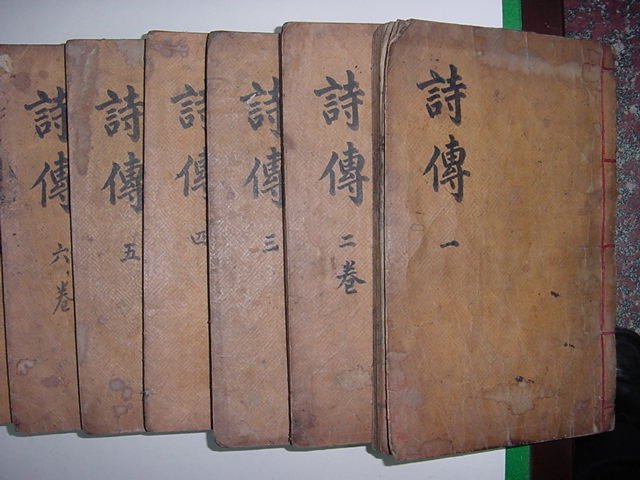 詩傳 一
詩傳 二卷
詩傳 三
詩傳 四
詩傳 五
詩傳 六卷